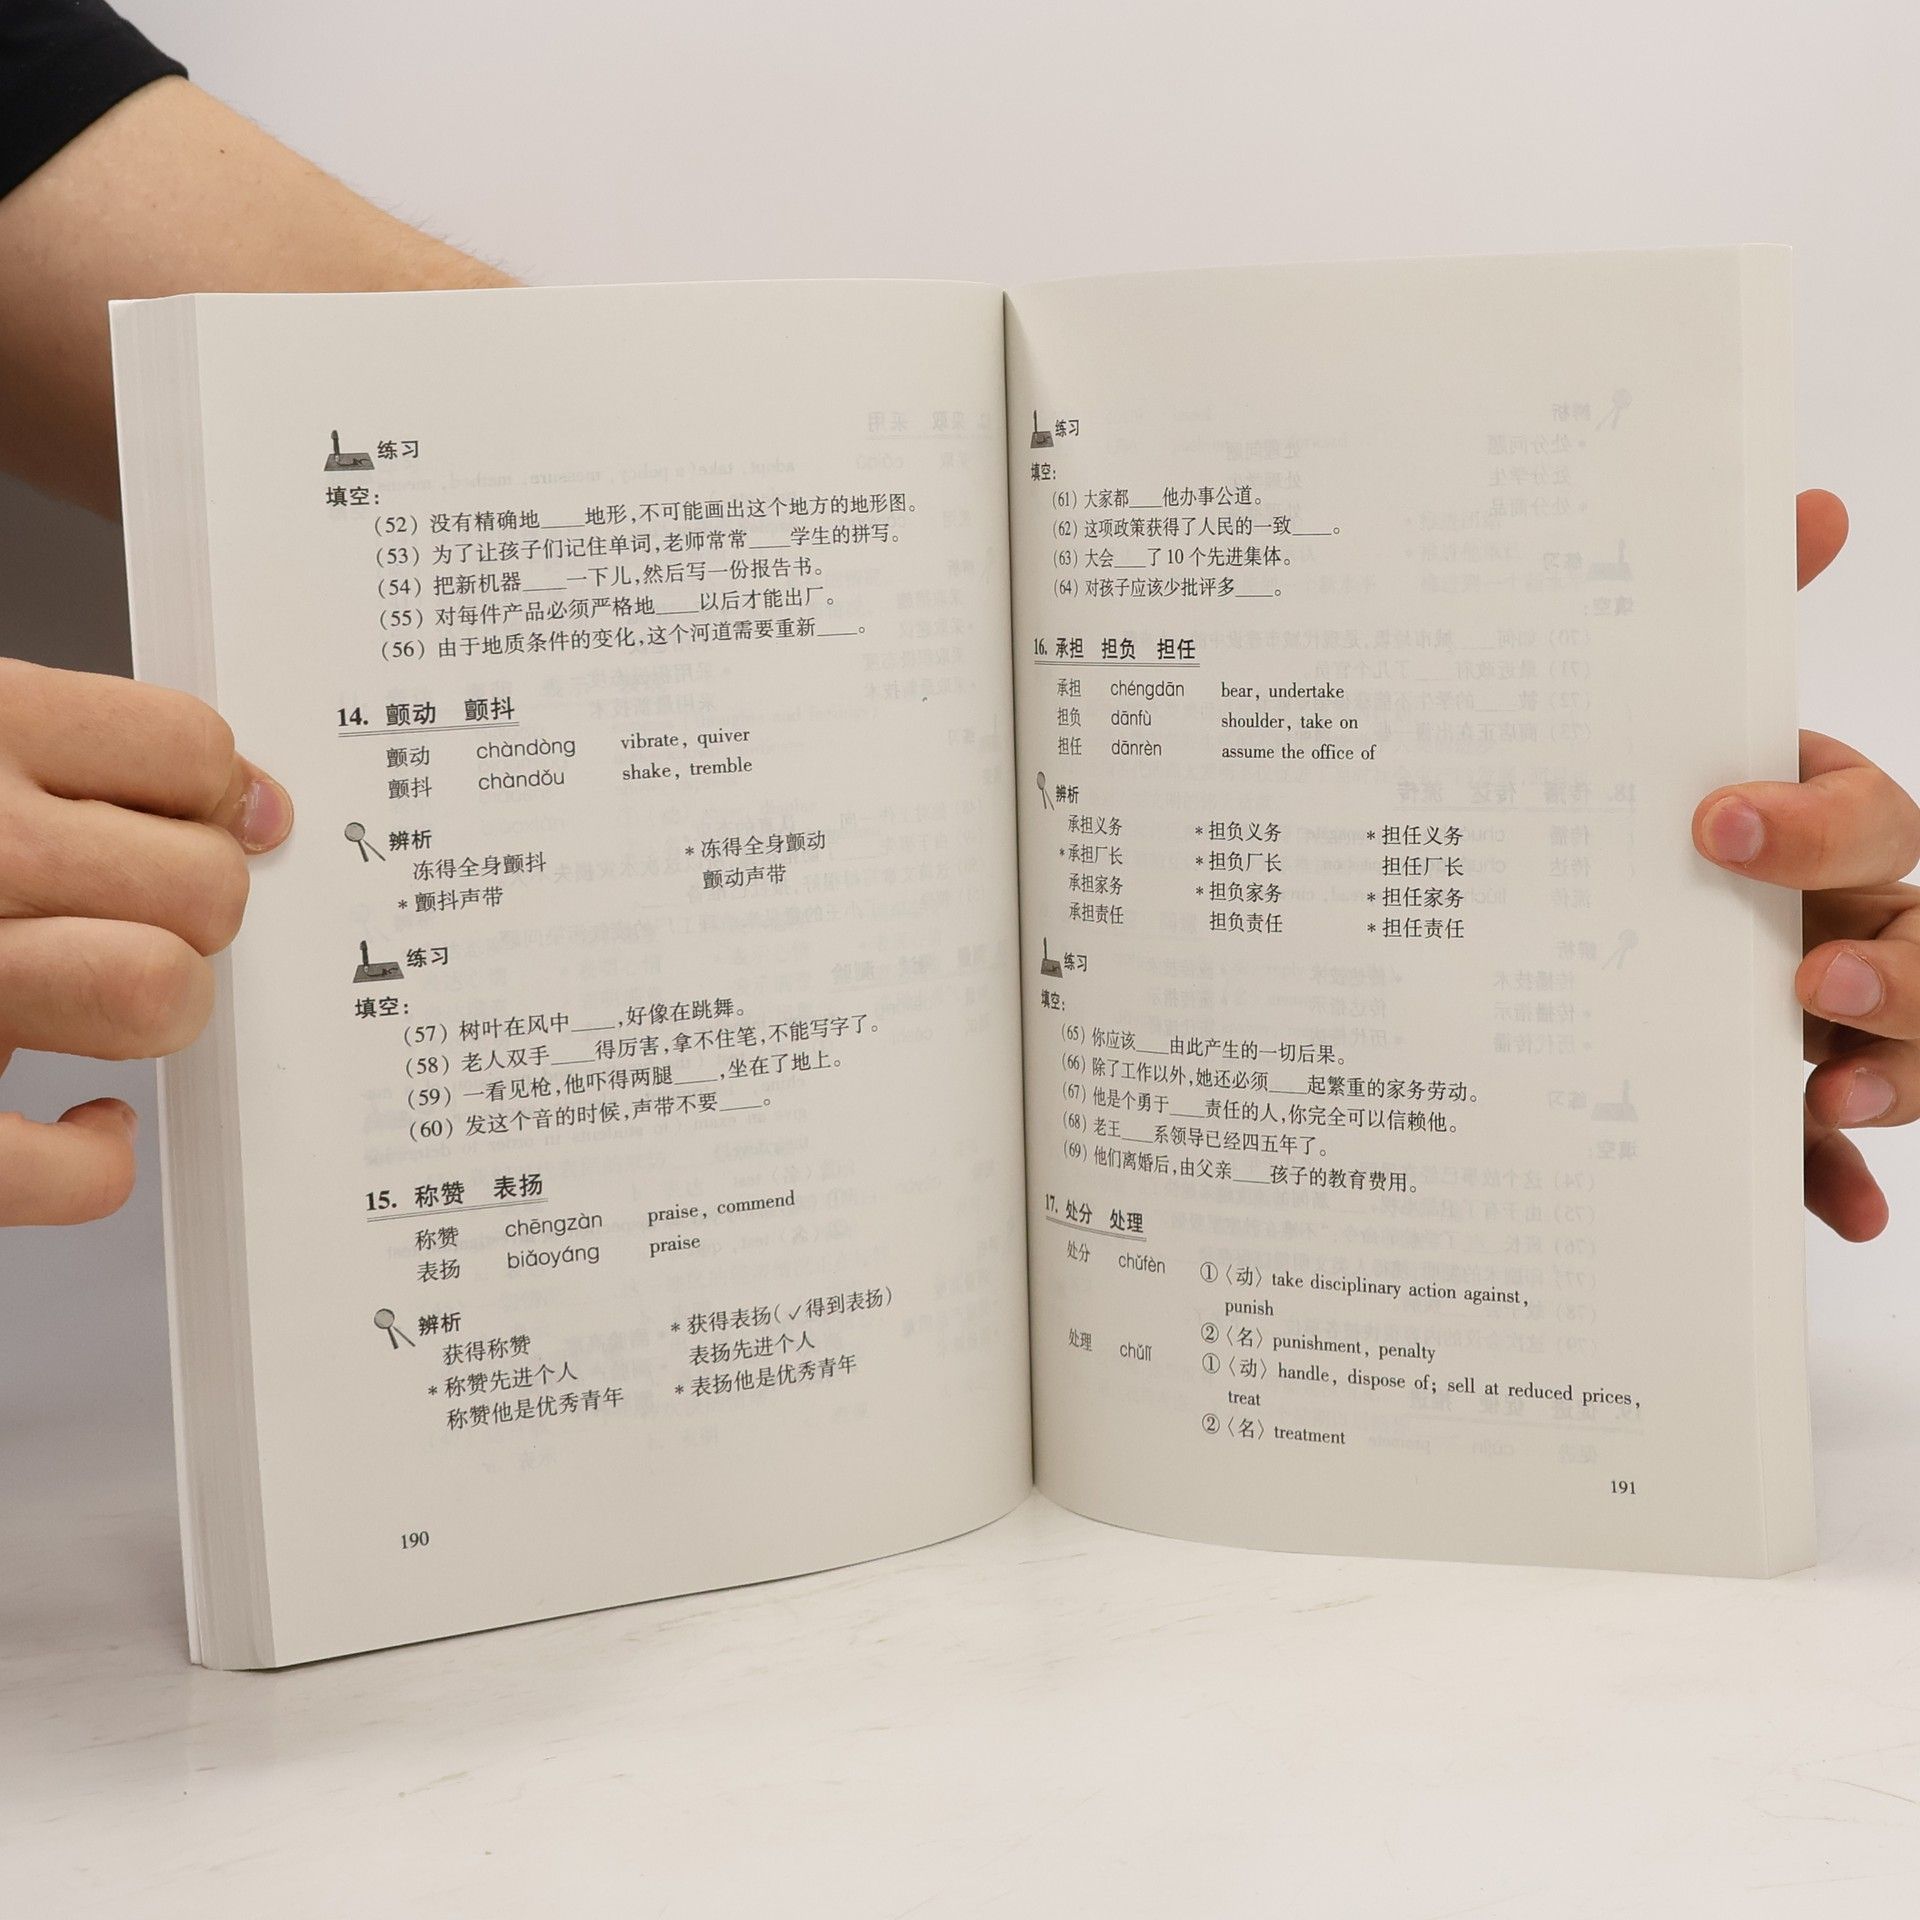 练习
填空:
(52) 没有精确地____地形,不可能画出这个地方的地形图。
(53) 为了让孩子们记住单词,老师常常____学生的拼写。
(54) 把新机器____一下儿,然后写一份报告书。
(55) 对每件产品必须严格地____以后才能出厂。
(56) 由于地质条件的变化,这个河道需要重新____。
14. 颤动 颤抖
颤动 chàndòng vibrate, quiver
颤抖 chàndǒu shake, tremble
辨析
冻得全身颤抖 *冻得全身颤动
*颤抖声带 颤动声带
练习
填空:
(57) 树叶在风中____,好像在跳舞。
(58) 老人双手____得厉害,拿不住笔,不能写字了。
(59) 一看见枪,他吓得两腿____,坐在了地上。
(60) 发这个音的时候,声带不要____。
15. 称赞 表扬
称赞 chēngzàn praise, commend
表扬 biǎoyáng praise
辨析
获得称赞 *获得表扬(✓得到表扬)
*称赞先进个人 表扬先进个人
称赞他是优秀青年 *表扬他是优秀青年
190
练习
填空:
(61) 大家都____他办事公道。
(62) 这项政策获得了人民的一致____。
(63) 大会____了10个先进集体。
(64) 对孩子应该少批评多____。
16. 承担 担负 担任
承担 chéngdān bear, undertake
担负 dānfù shoulder, take on
担任 dānrèn assume the office of
辨析
承担义务 *担负义务 *担任义务
*承担厂长 *担负厂长 担任厂长
承担家务 *担负家务 *担任家务
承担责任 担负责任 *担任责任
练习
填空:
(65) 你应该____由此产生的一切后果。
(66) 除了工作以外,她还必须____起繁重的家务劳动。
(67) 他是个勇于____责任的人,你完全可以信赖他。
(68) 老王____系领导已经四五年了。
(69) 他们离婚后,由父亲____孩子的教育费用。
17. 处分 处理
处分 chǔfèn ①〈动〉take disciplinary action against,
punish
②〈名〉punishment, penalty
处理 chǔlǐ ①〈动〉handle, dispose of; sell at reduced prices,
treat
②〈名〉treatment
191